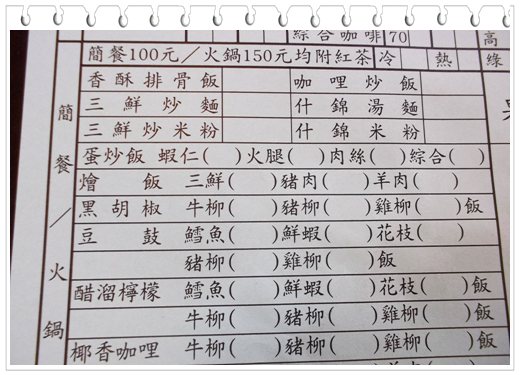 綜合咖啡 70 高
簡餐100元／火鍋150元均附紅茶 冷 熱 綠
簡餐／火鍋
香酥排骨飯 咖哩炒飯
三鮮炒麵 什錦湯麵
三鮮炒米粉 什錦米粉
蛋炒飯 蝦仁( )火腿( )肉絲( )綜合( )
燴飯 三鮮( )豬肉( )羊肉( )
黑胡椒 牛柳( )豬柳( )雞柳( )飯
豆鼓 鱈魚( )鮮蝦( )花枝( )
豬柳( )雞柳( )飯
醋溜檸檬 鱈魚( )鮮蝦( )花枝( )飯
牛柳( )豬柳( )雞柳( )飯
椰香咖哩 牛柳( )豬柳( )雞柳( )飯